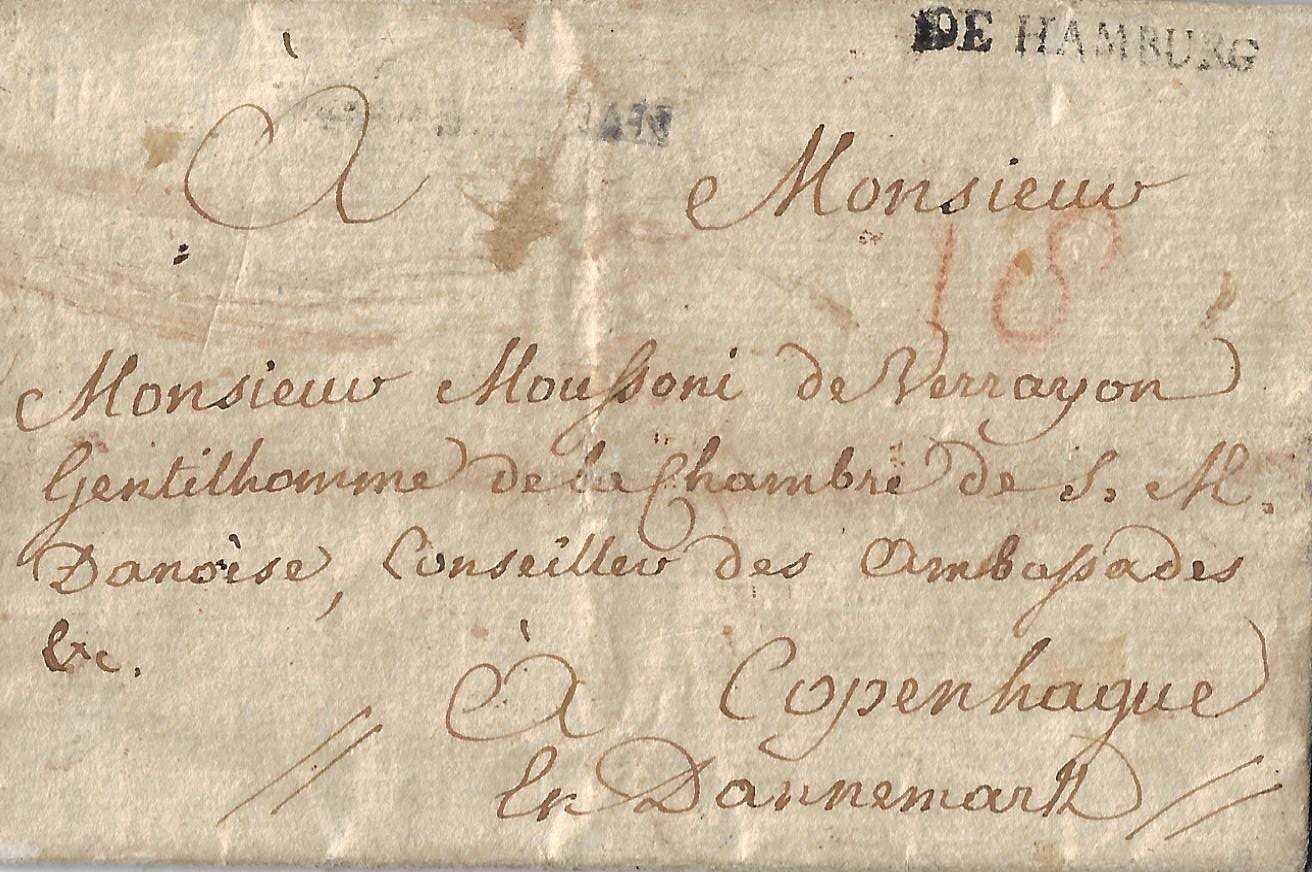 DE HAMBURG
À Monsieur
18
Monsieur Moussoni de Verrayon
Gentilhomme de la Chambre de S. M.
Danoise, Conseiller des Ambassades
&c.
À Copenhague
En Dannemark